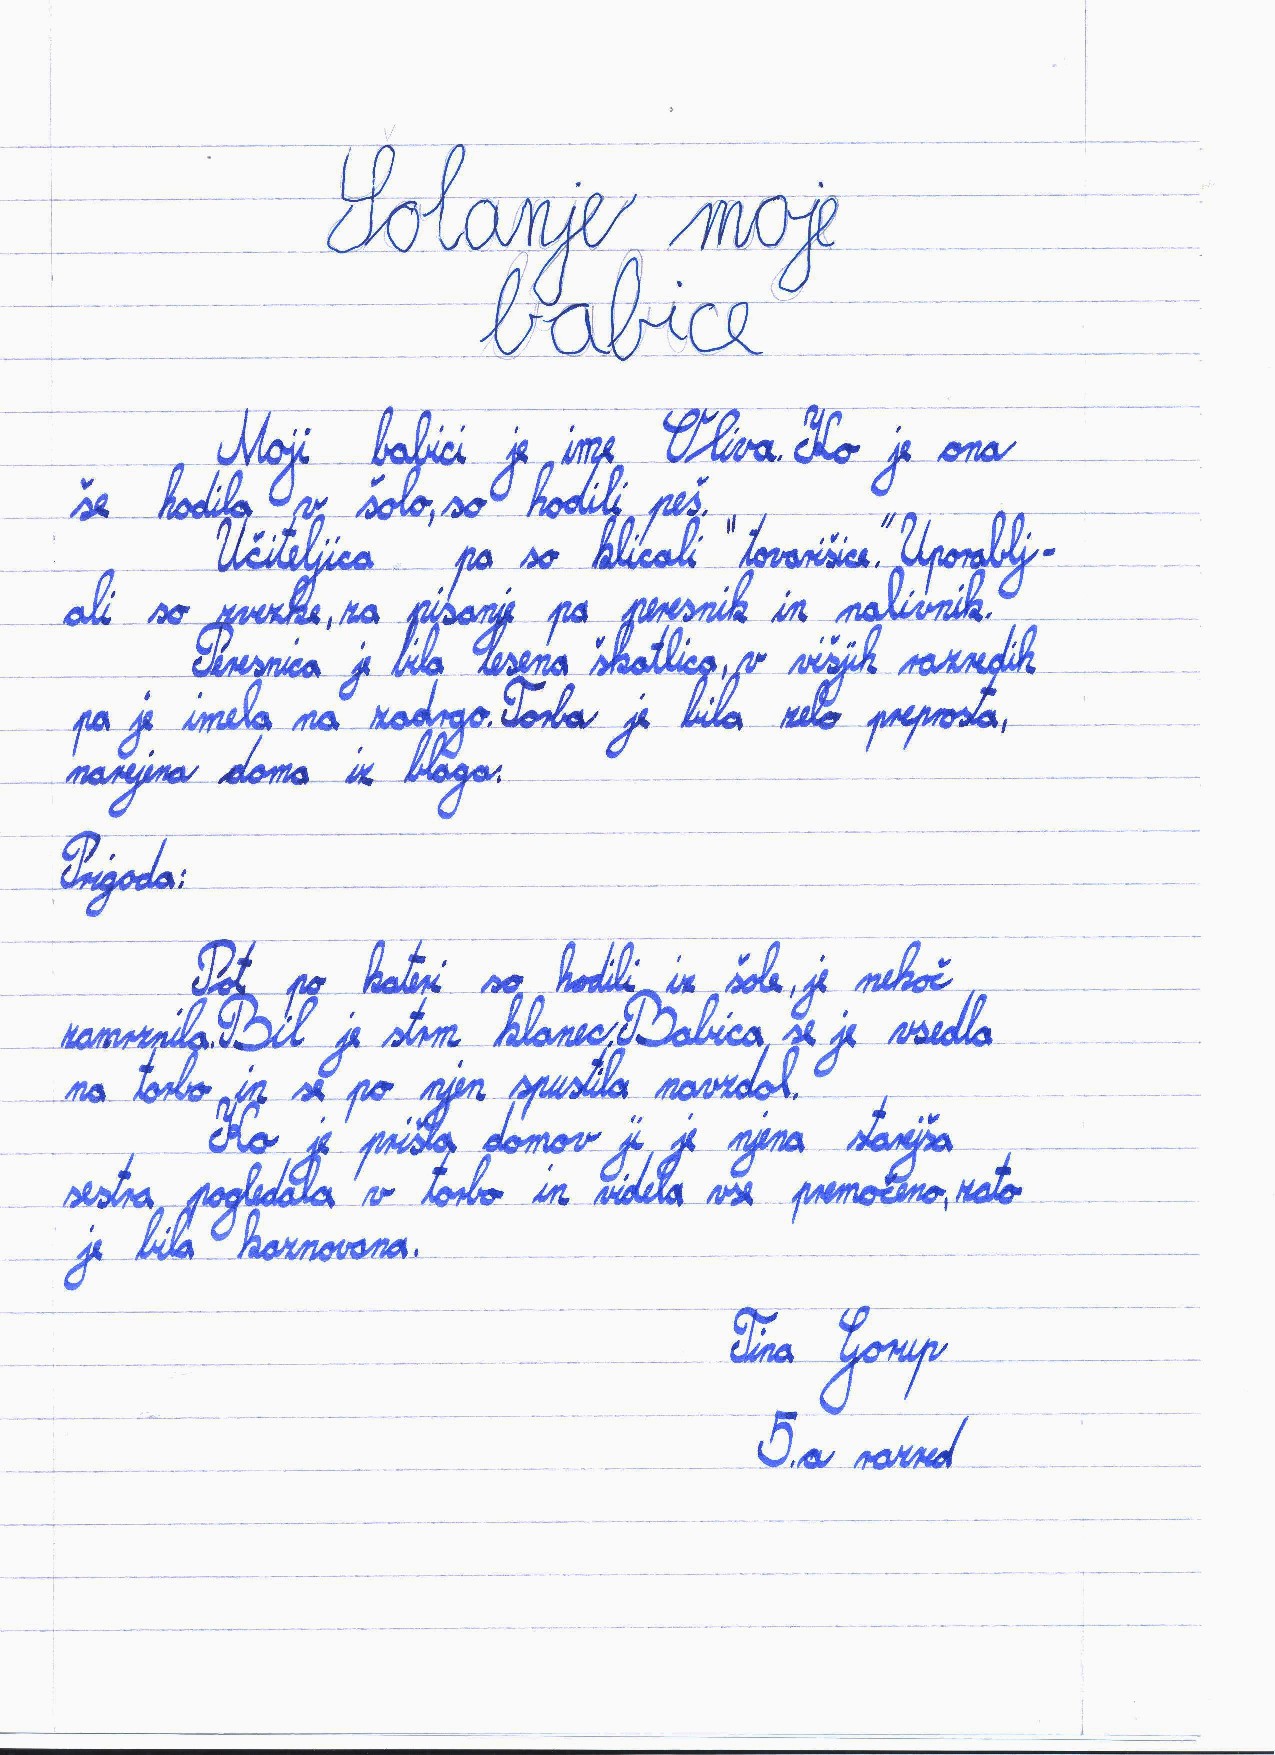 Šolanje moje
babice
Moji babici je ime Oliva. Ko je ona
še hodila v šolo, so hodili peš.
Učiteljica pa so klicali "tovarišice." Uporablj-
ali so zvezke, za pisanje pa peresnik in nalivnik.
Peresnica je bila lesena škatlica, v višjih razredih
pa je imela na zadrgo. Torba je bila zelo preprosta,
narejena doma iz blaga.
Prigoda:
Pot po kateri so hodili iz šole, je nekoč
zamrznila. Bil je strm klanec. Babica se je vsedla
na torbo in se po njen spustila navzdol.
Ko je prišla domov ji je njena starejša
sestra pogledala v torbo in videla vse premočeno, zato
je bila kaznovana.
Tina Gorup
5.a razred